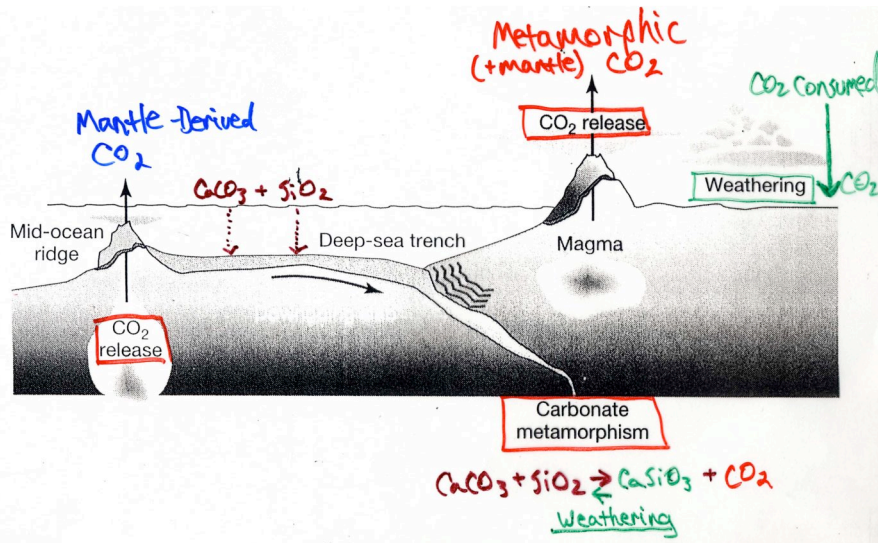 Metamorphic
(+mantle) CO₂
CO₂ release
CO₂ Consumed
Weathering
CO₂
Mantle-Derived
CO₂
CaCO₃ + SiO₂
Mid-ocean
ridge
Deep-sea trench
Magma
CO₂
release
Carbonate
metamorphism
CaCO₃ + SiO₂ ⇄ CaSiO₃ + CO₂
Weathering